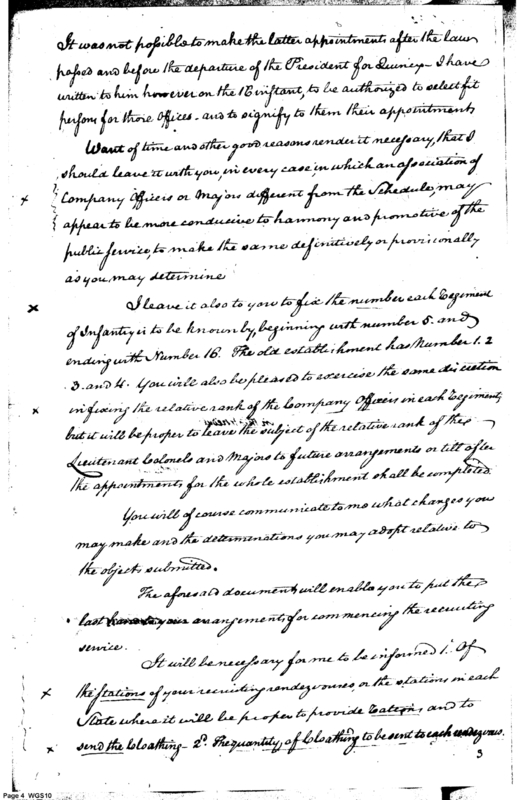 It was not possible to make the latter appointments after the law
passed and before the departure of the President for Quincy - I have
written to him however on the 1t instant, to be authorized to select fit
persons for those offices - and to signify to them their appointments
Want of time and other good reasons render it necessary, that I
should leave it with you, in every case in which an association of
Company Officers or Majors different from the Schedule, may
appear to be more conducive to harmony and promotive of the
public service, to make the same definitively or provisionally
as you may determine
I leave it also to you to fix the number each Regiment
of Infantry is to be known by, beginning with number 5. and
ending with Number 16. The old establishment has Number 1. 2
3. and 4. You will also be pleased to exercise the same discretion
in fixing the relative rank of the Company Officers in each Regiment,
but it will be proper to leave the subject of the relative rank of the
Lieutenant Colonels and Majors to future arrangements or till after
the appointments for the whole establishment shall be completed
You will of course communicate to me what changes you
may make and the determinations you may adopt relative to
the objects submitted.
The aforesaid documents will enable you to put the
last hand to your arrangements for commencing the recruiting
service.
It will be necessary for me to be informed 1t. Of
the stations of your recruiting rendezvouses, or the stations in each
State where it will be proper to provide Rations, and to
send the Cloathing - 2d. The quantity of Cloathing to be sent to each rendezvous.
3
Page 4 WGS10